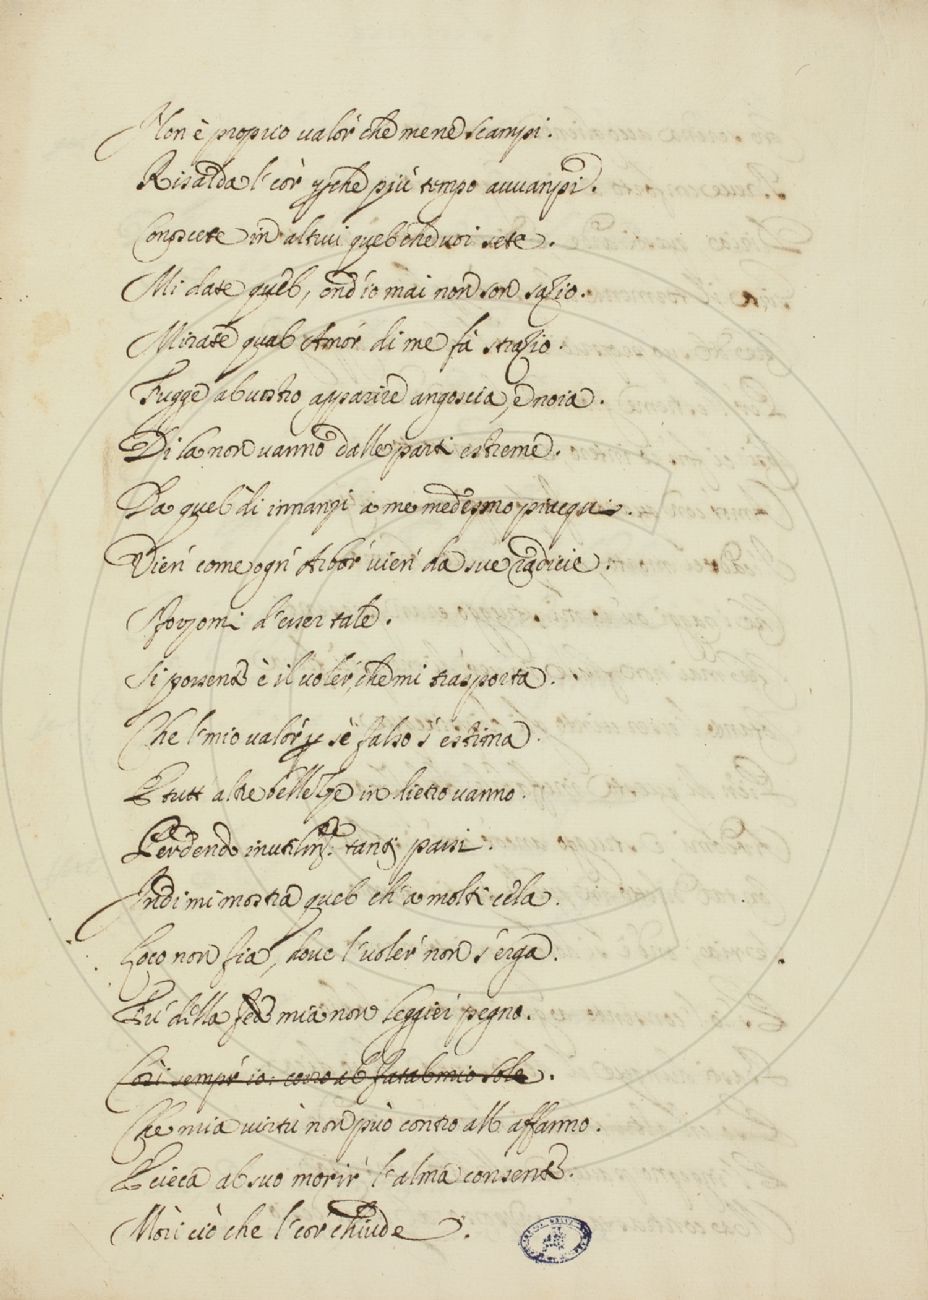 Non è proprio valor' che mene scampi.
Risalda l'cor' pche più tempo avvanpi.
Conoscete in altrui quel che voi sete.
Mi date quel, ond'io mai non son sazio.
Mirate qual Amor' di me fà strazio.
Fugge al vostro apparire angoscia, e noia.
Di la non vanno dalle parti estreme.
Da quel dì innanzi a me medesmo piacqui.
Vien' come ogn' Arbor' vien' da sue radicie.
Sforzomi d'esser tale.
Si possente è il voler, che mi trasporta.
Che l'mio valor' p sè falso s'estima.
E tutt altre bellezze in dietro vanno.
Perdendo inutilm.te tanti passi.
Indi mi mostra quel ch'a molti cela.
Loco non fia, dove l'voler' non s'erga.
Fù della fede mia non leggier pegno.
Così sempr'io: corro al fatal mio sole.
Che mia virtù non può contro all affanno.
E cieca al suo morir' l'alma consente.
Mori ciò che l'cor chiude.